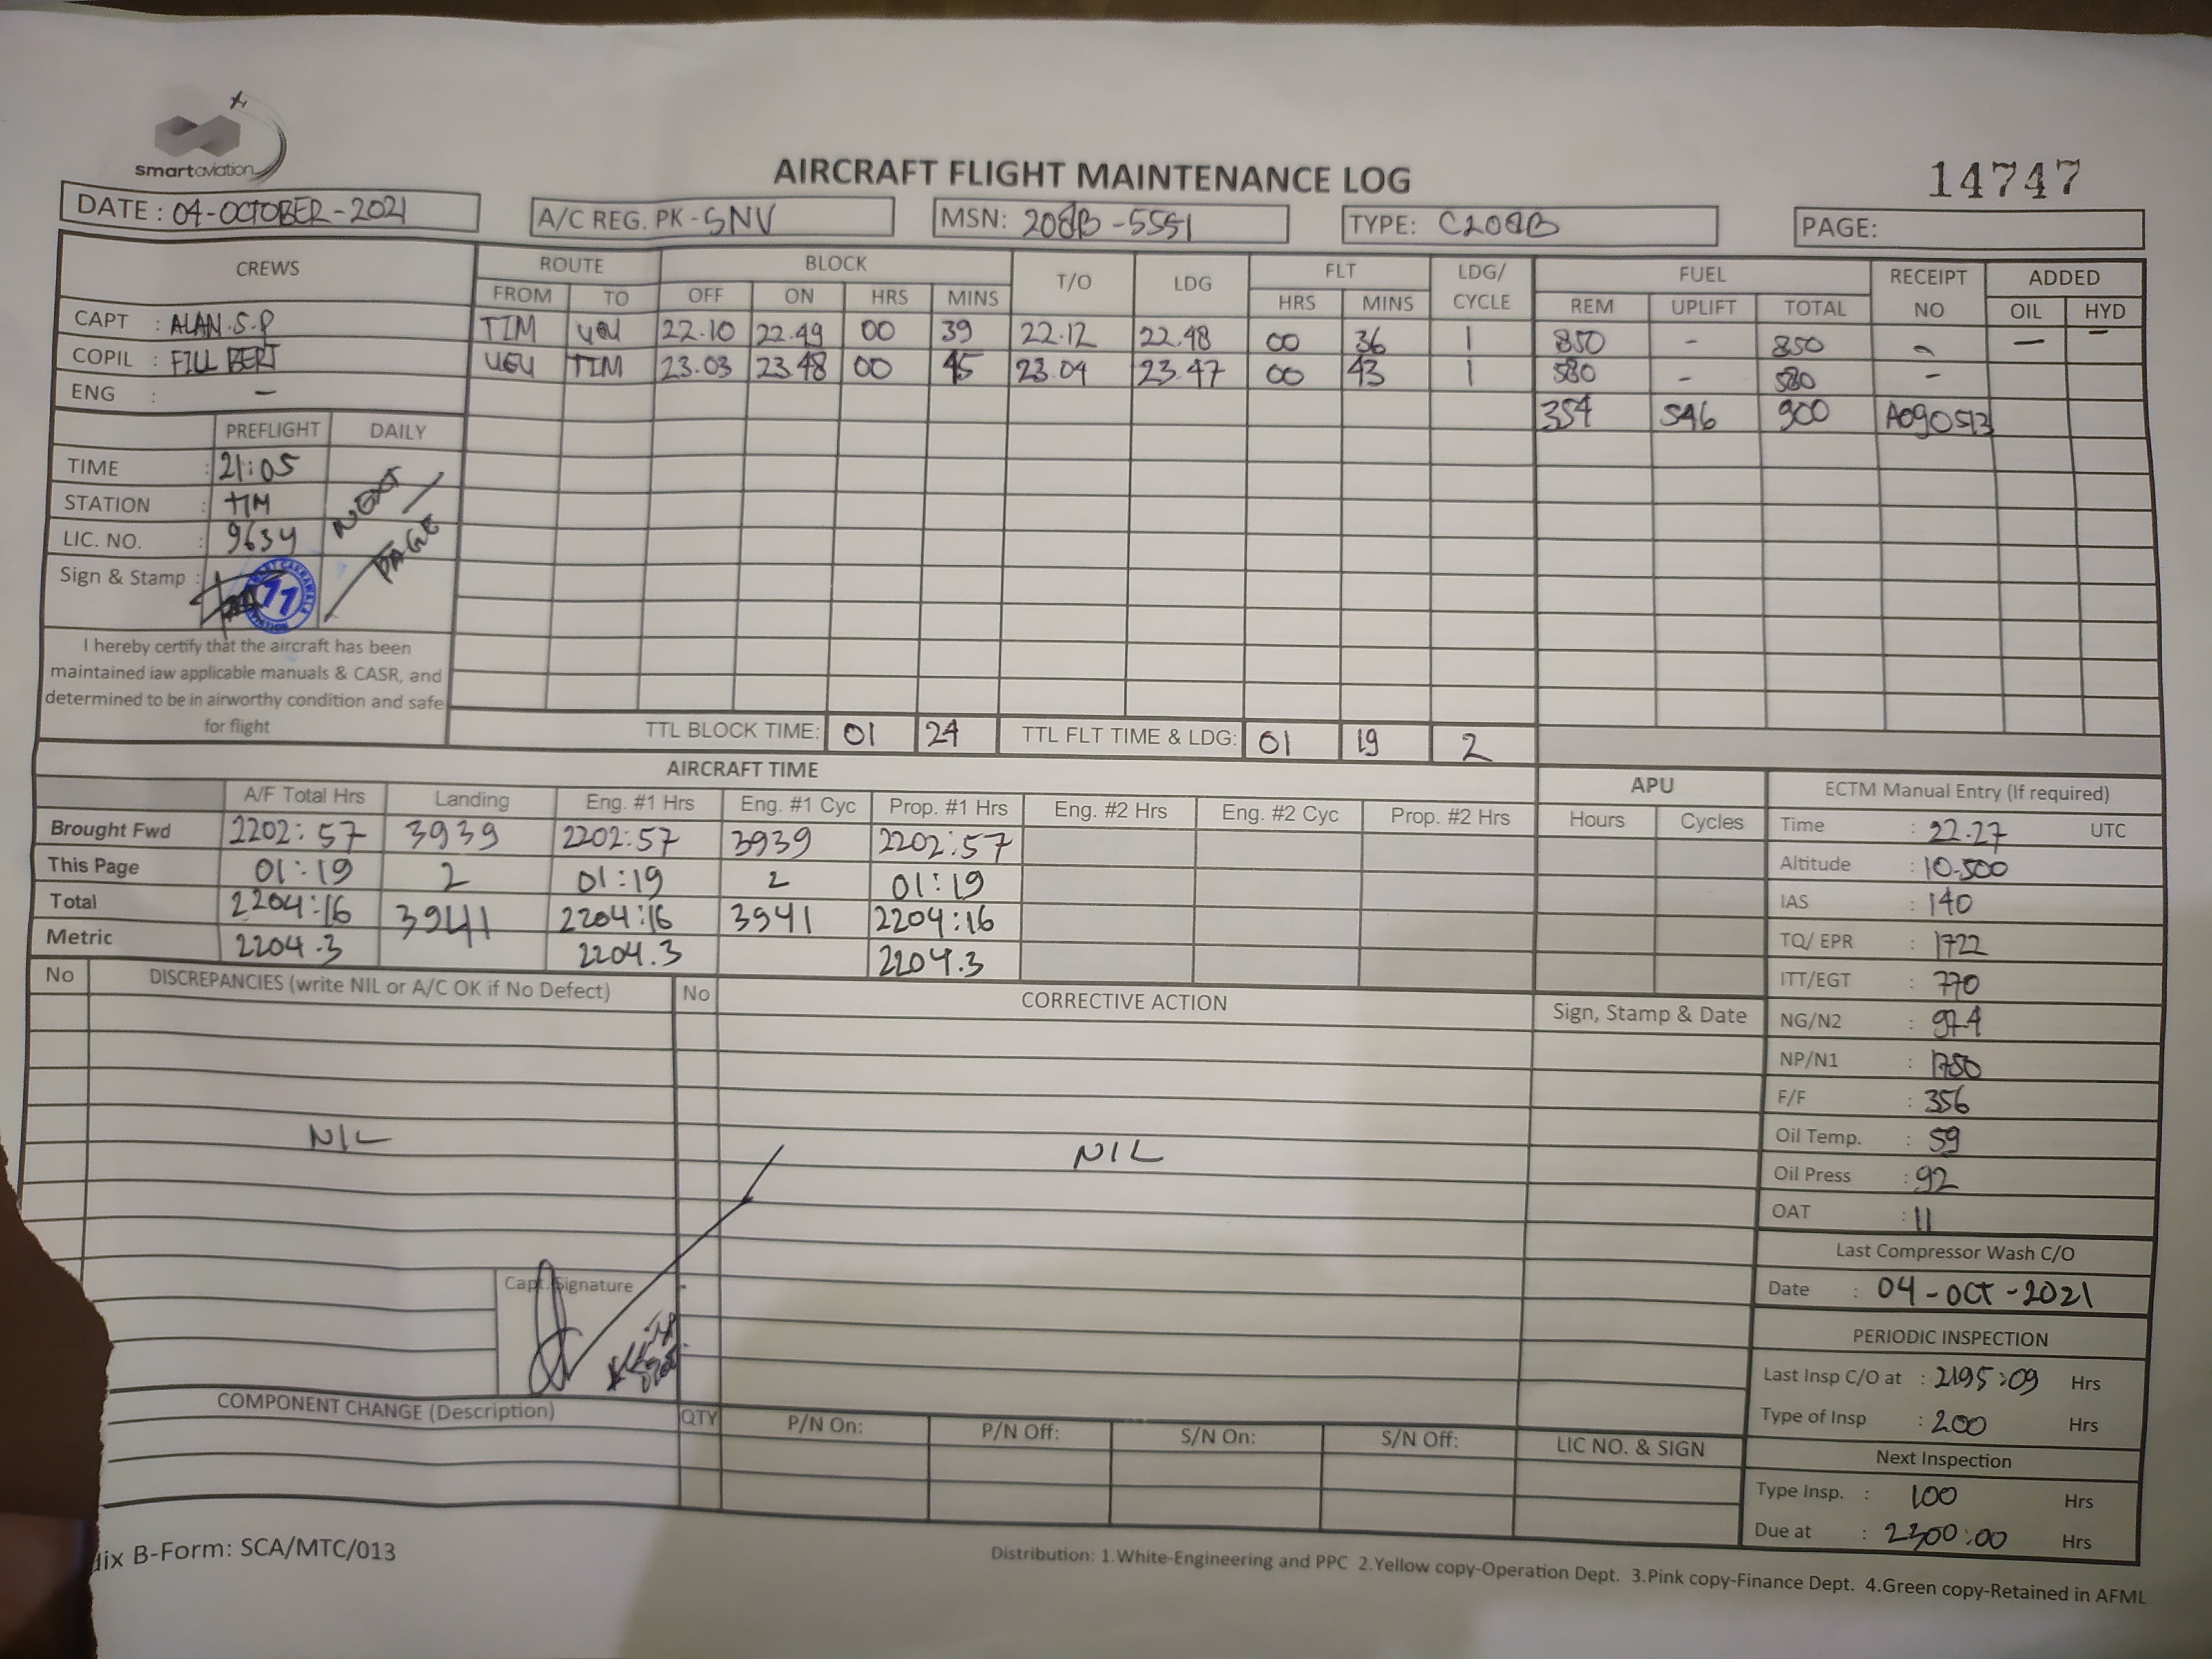 smartaviation
AIRCRAFT FLIGHT MAINTENANCE LOG
14747
DATE : 04-OCTOBER-2021
A/C REG. PK - SNV
MSN: 208B-5551
TYPE: C208B
PAGE:
CREWS ROUTE BLOCK T/O LDG FLT LDG/ CYCLE FUEL RECEIPT NO ADDED
FROM TO OFF ON HRS MINS HRS MINS REM UPLIFT TOTAL OIL HYD
CAPT : ALAN.S.P TIM UGU 22.10 22.49 00 39 22.12 22.48 00 36 1 850 - 850 - — —
COPIL : FILL BERT UGU TIM 23.03 23.48 00 45 23.04 23.47 00 43 1 580 - 580 -
ENG : —
354 546 900 A090513
PREFLIGHT DAILY
TIME : 21:05
STATION : TIM
LIC. NO. : 9634
NEXT PAGE
Sign & Stamp :
11
I hereby certify that the aircraft has been
maintained iaw applicable manuals & CASR, and
determined to be in airworthy condition and safe
for flight
TTL BLOCK TIME: 01 24 TTL FLT TIME & LDG: 01 19 2
AIRCRAFT TIME
A/F Total Hrs Landing Eng. #1 Hrs Eng. #1 Cyc Prop. #1 Hrs Eng. #2 Hrs Eng. #2 Cyc Prop. #2 Hrs
Brought Fwd 2202:57 3939 2202:57 3939 2202:57
This Page 01:19 2 01:19 2 01:19
Total 2204:16 3941 2204:16 3941 2204:16
Metric 2204.3 2204.3 2204.3
APU
Hours Cycles
ECTM Manual Entry (If required)
Time : 22.27 UTC
Altitude : 10.500
IAS : 140
TQ/ EPR : 1722
ITT/EGT : 770
NG/N2 : 97.4
NP/N1 : 1750
F/F : 356
Oil Temp. : 59
Oil Press : 92
OAT : 11
Last Compressor Wash C/O
Date : 04-OCT-2021
PERIODIC INSPECTION
Last Insp C/O at : 2195:09 Hrs
Type of Insp : 200 Hrs
Next Inspection
Type Insp. : 100 Hrs
Due at : 2300:00 Hrs
No DISCREPANCIES (write NIL or A/C OK if No Defect) No CORRECTIVE ACTION Sign, Stamp & Date
NIL NIL
Capt. Signature
COMPONENT CHANGE (Description) QTY P/N On: P/N Off: S/N On: S/N Off: LIC NO. & SIGN
dix B-Form: SCA/MTC/013
Distribution: 1.White-Engineering and PPC 2.Yellow copy-Operation Dept. 3.Pink copy-Finance Dept. 4.Green copy-Retained in AFML